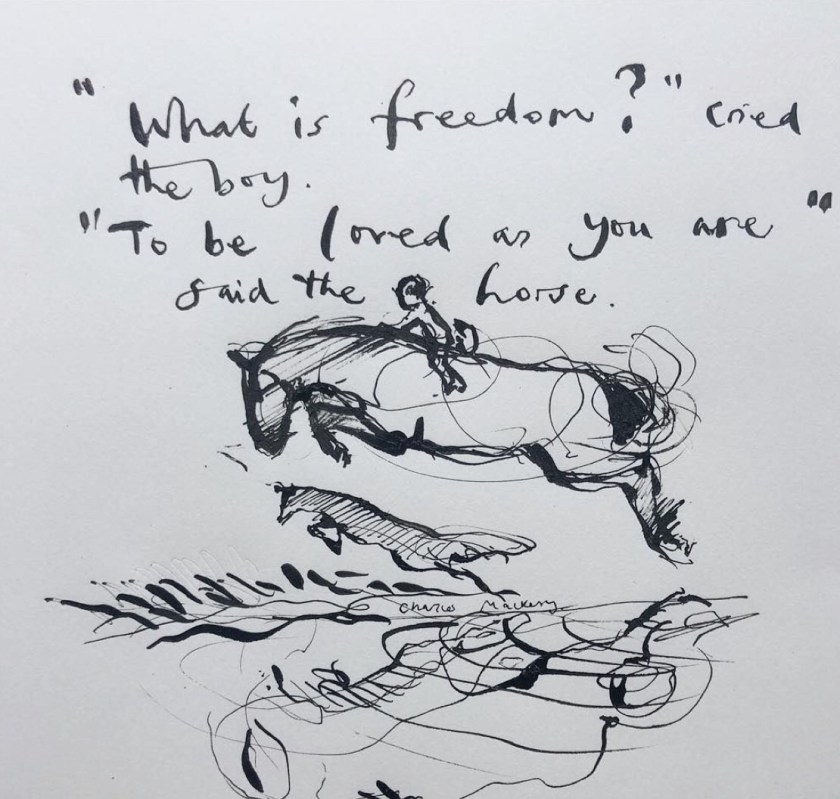 "What is freedom?" cried
the boy.
"To be loved as you are"
said the horse.
Charlie Mackesy